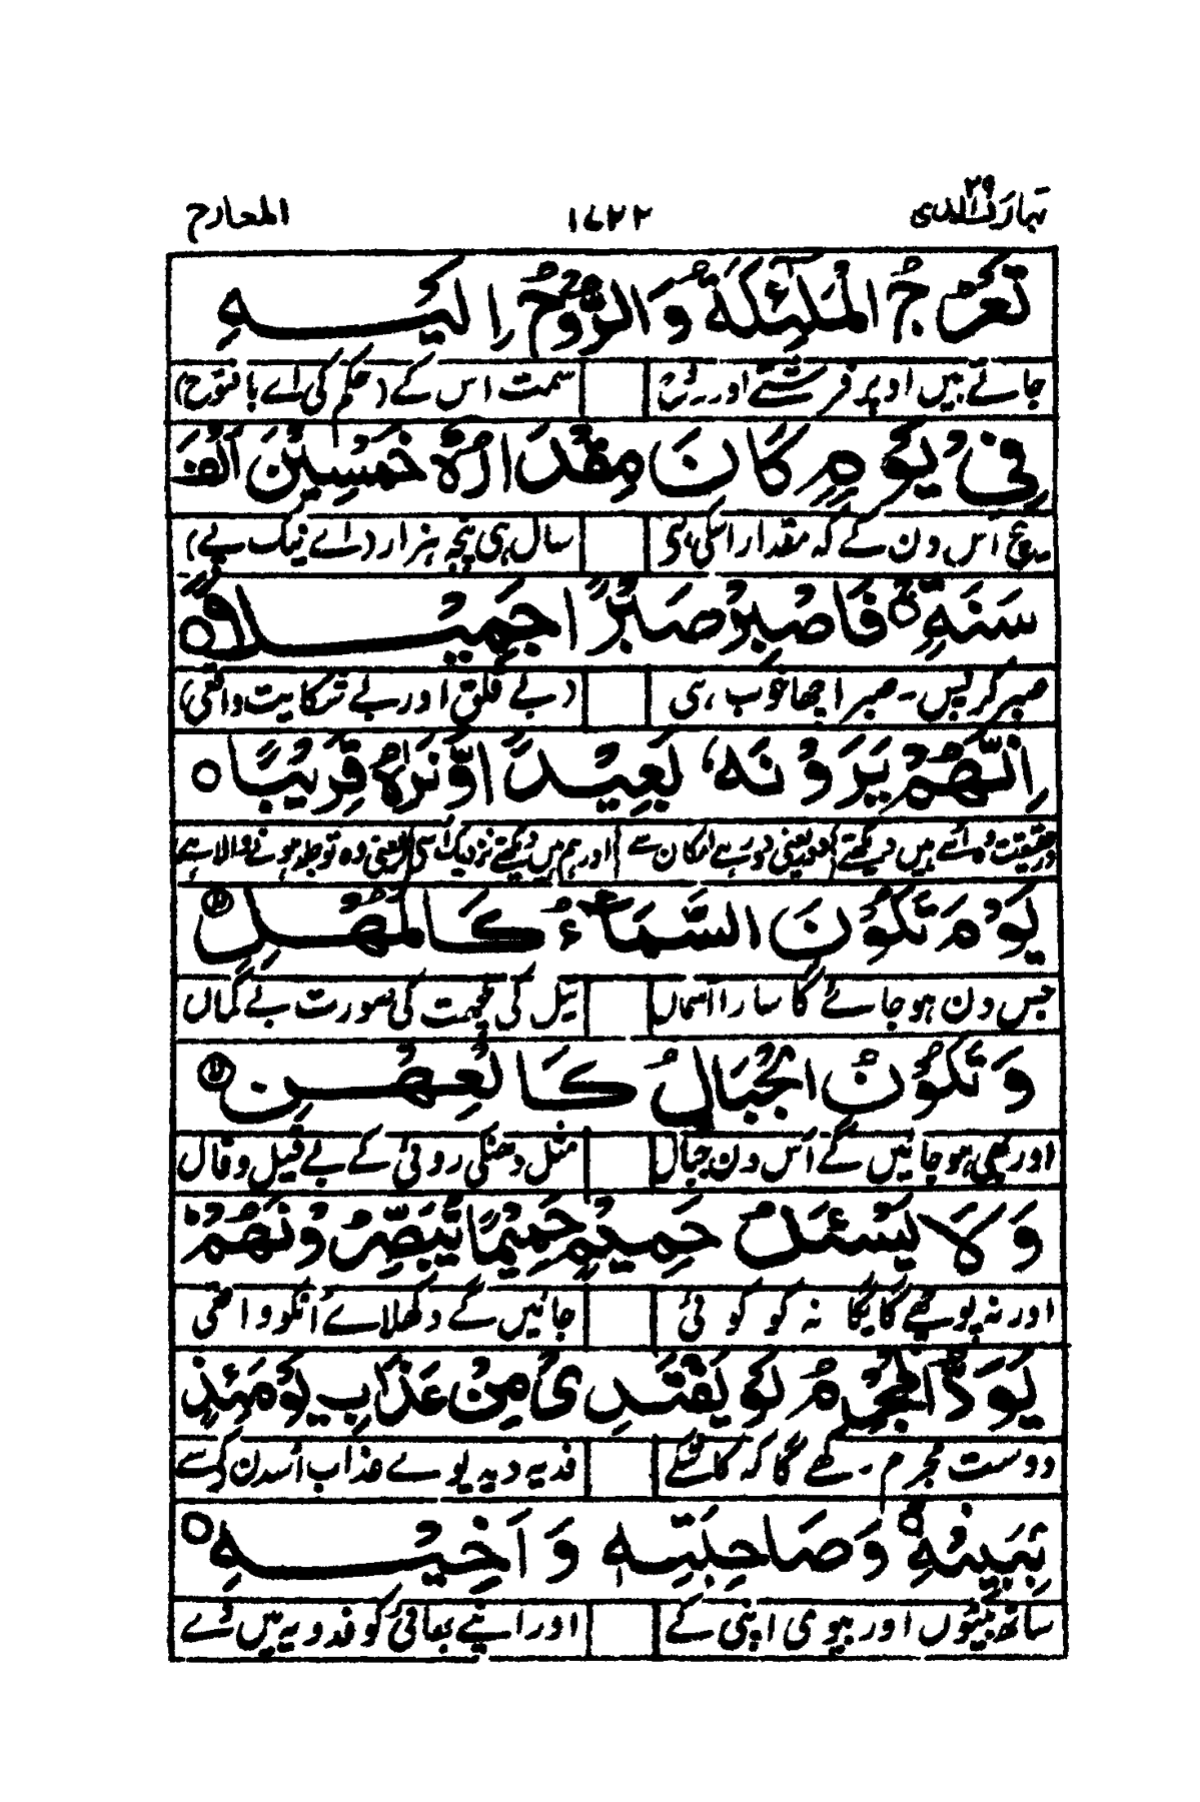 تبارک الذی ۲۹ ۱۶۲۲ المعارج
تَعْرُجُ الْمَلٰٓئِكَةُ وَالرُّوْحُ اِلَيْهِ
جاتے ہیں اوپر فرشتے اور سمت اس کے (حکم کی اے با فتوح)
فِيْ يَوْمٍ كَانَ مِقْدَارُهٗ خَمْسِيْنَ اَلْفَ
بیچ اس دن کے کہ مقدار اسکی ہی سال ہی پنجہ ہزار (اے نیک پے)
سَنَةٍ فَاصْبِرْ صَبْرًا جَمِيْلًا
صبر کر پس - صبر اچھا خوب ہی (بے قلق اور بے شکایت واقعی)
اِنَّهُمْ يَرَوْنَهٗ بَعِيْدًا وَّنَرٰهُ قَرِيْبًا
در حقیقت وہ اسے ہیں دیکھتے دور یعنی دور ہے امکان سے اور ہم ہیں دیکھتے نزدیک اسی یعنی وہ تو جلد ہونے والا ہے
يَوْمَ تَكُوْنُ السَّمَآءُ كَالْمُهْلِ
جس دن ہو جائے گا سارا آسماں تیل کی تہمت کی صورت بے گماں
وَتَكُوْنُ الْجِبَالُ كَالْعِهْنِ
اور بھی ہو جائیں گے اس دن جبال مثل دھنکی روئی کے بے قیل و قال
وَلَا يَسْئَلُ حَمِيْمٌ حَمِيْمًا يُّبَصَّرُوْنَهُمْ
اور نہ پوچھے گا یگانہ کو کوئی جائیں گے دکھلاے انکو واقعی
يَوَدُّ الْمُجْرِمُ لَوْ يَفْتَدِيْ مِنْ عَذَابِ يَوْمَئِذٍ
دوست مجرم رکھے گا کہ کاشکے فدیہ دیدیوے عذاب اسدن کے سے
بِبَنِيْهِ وَصَاحِبَتِهٖ وَاَخِيْهِ
ساتھ بیٹوں اور بیوی اپنی کے اور اپنے بھائی کو فدویہ میں دے